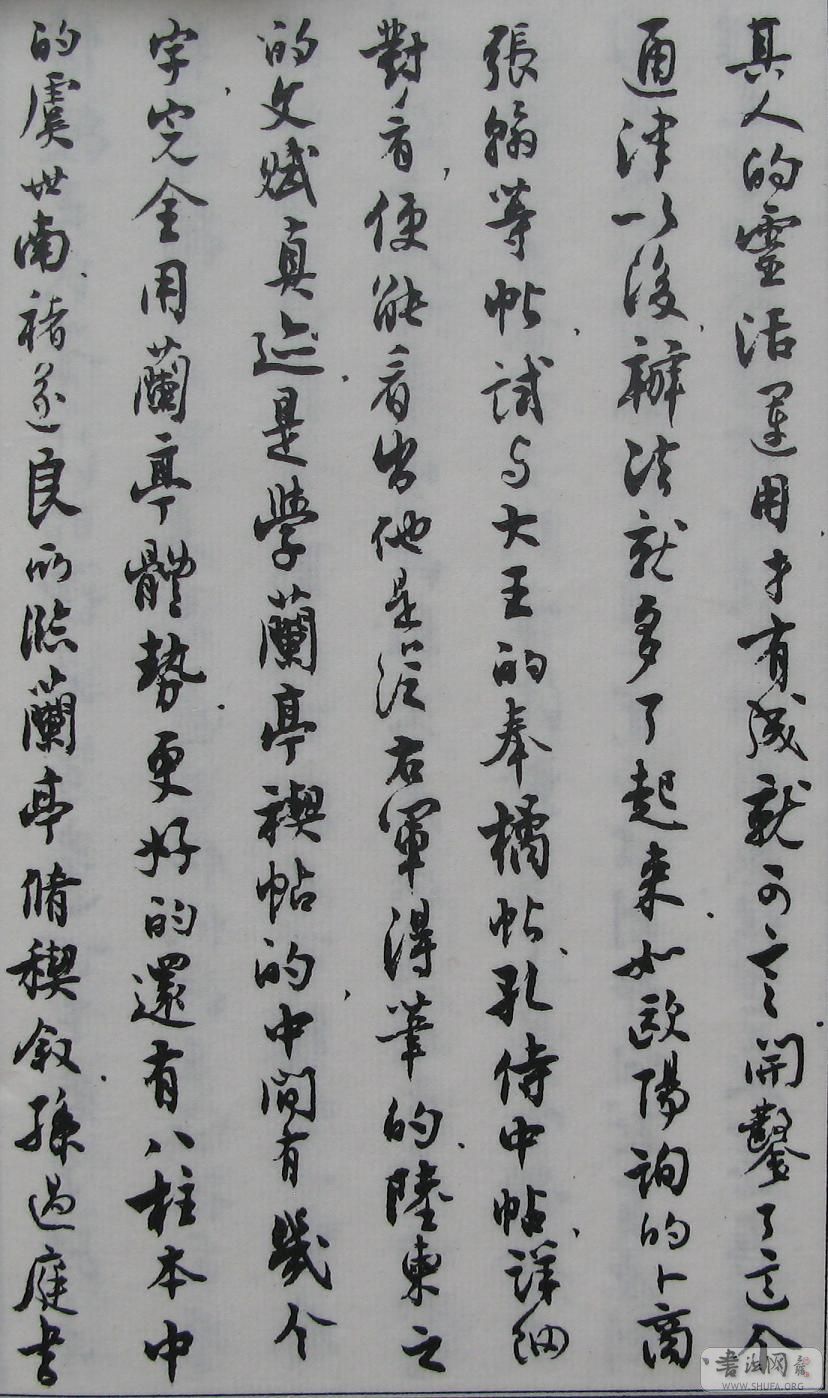 其人的靈活運用才有成就可言開鑿了這个
通津以後辦法就多了起来如歐陽詢的卜商
張翰等帖試与大王的奉橘帖孔侍中帖詳细
對看便能看出他是從右軍得筆的陸柬之
的文賦真迹是學蘭亭禊帖的中間有幾个
字完全用蘭亭體勢更好的還有八柱本中
的虞世南褚遂良所臨蘭亭脩稧叙孫過庭書
书法网
WWW.SHUFA.ORG